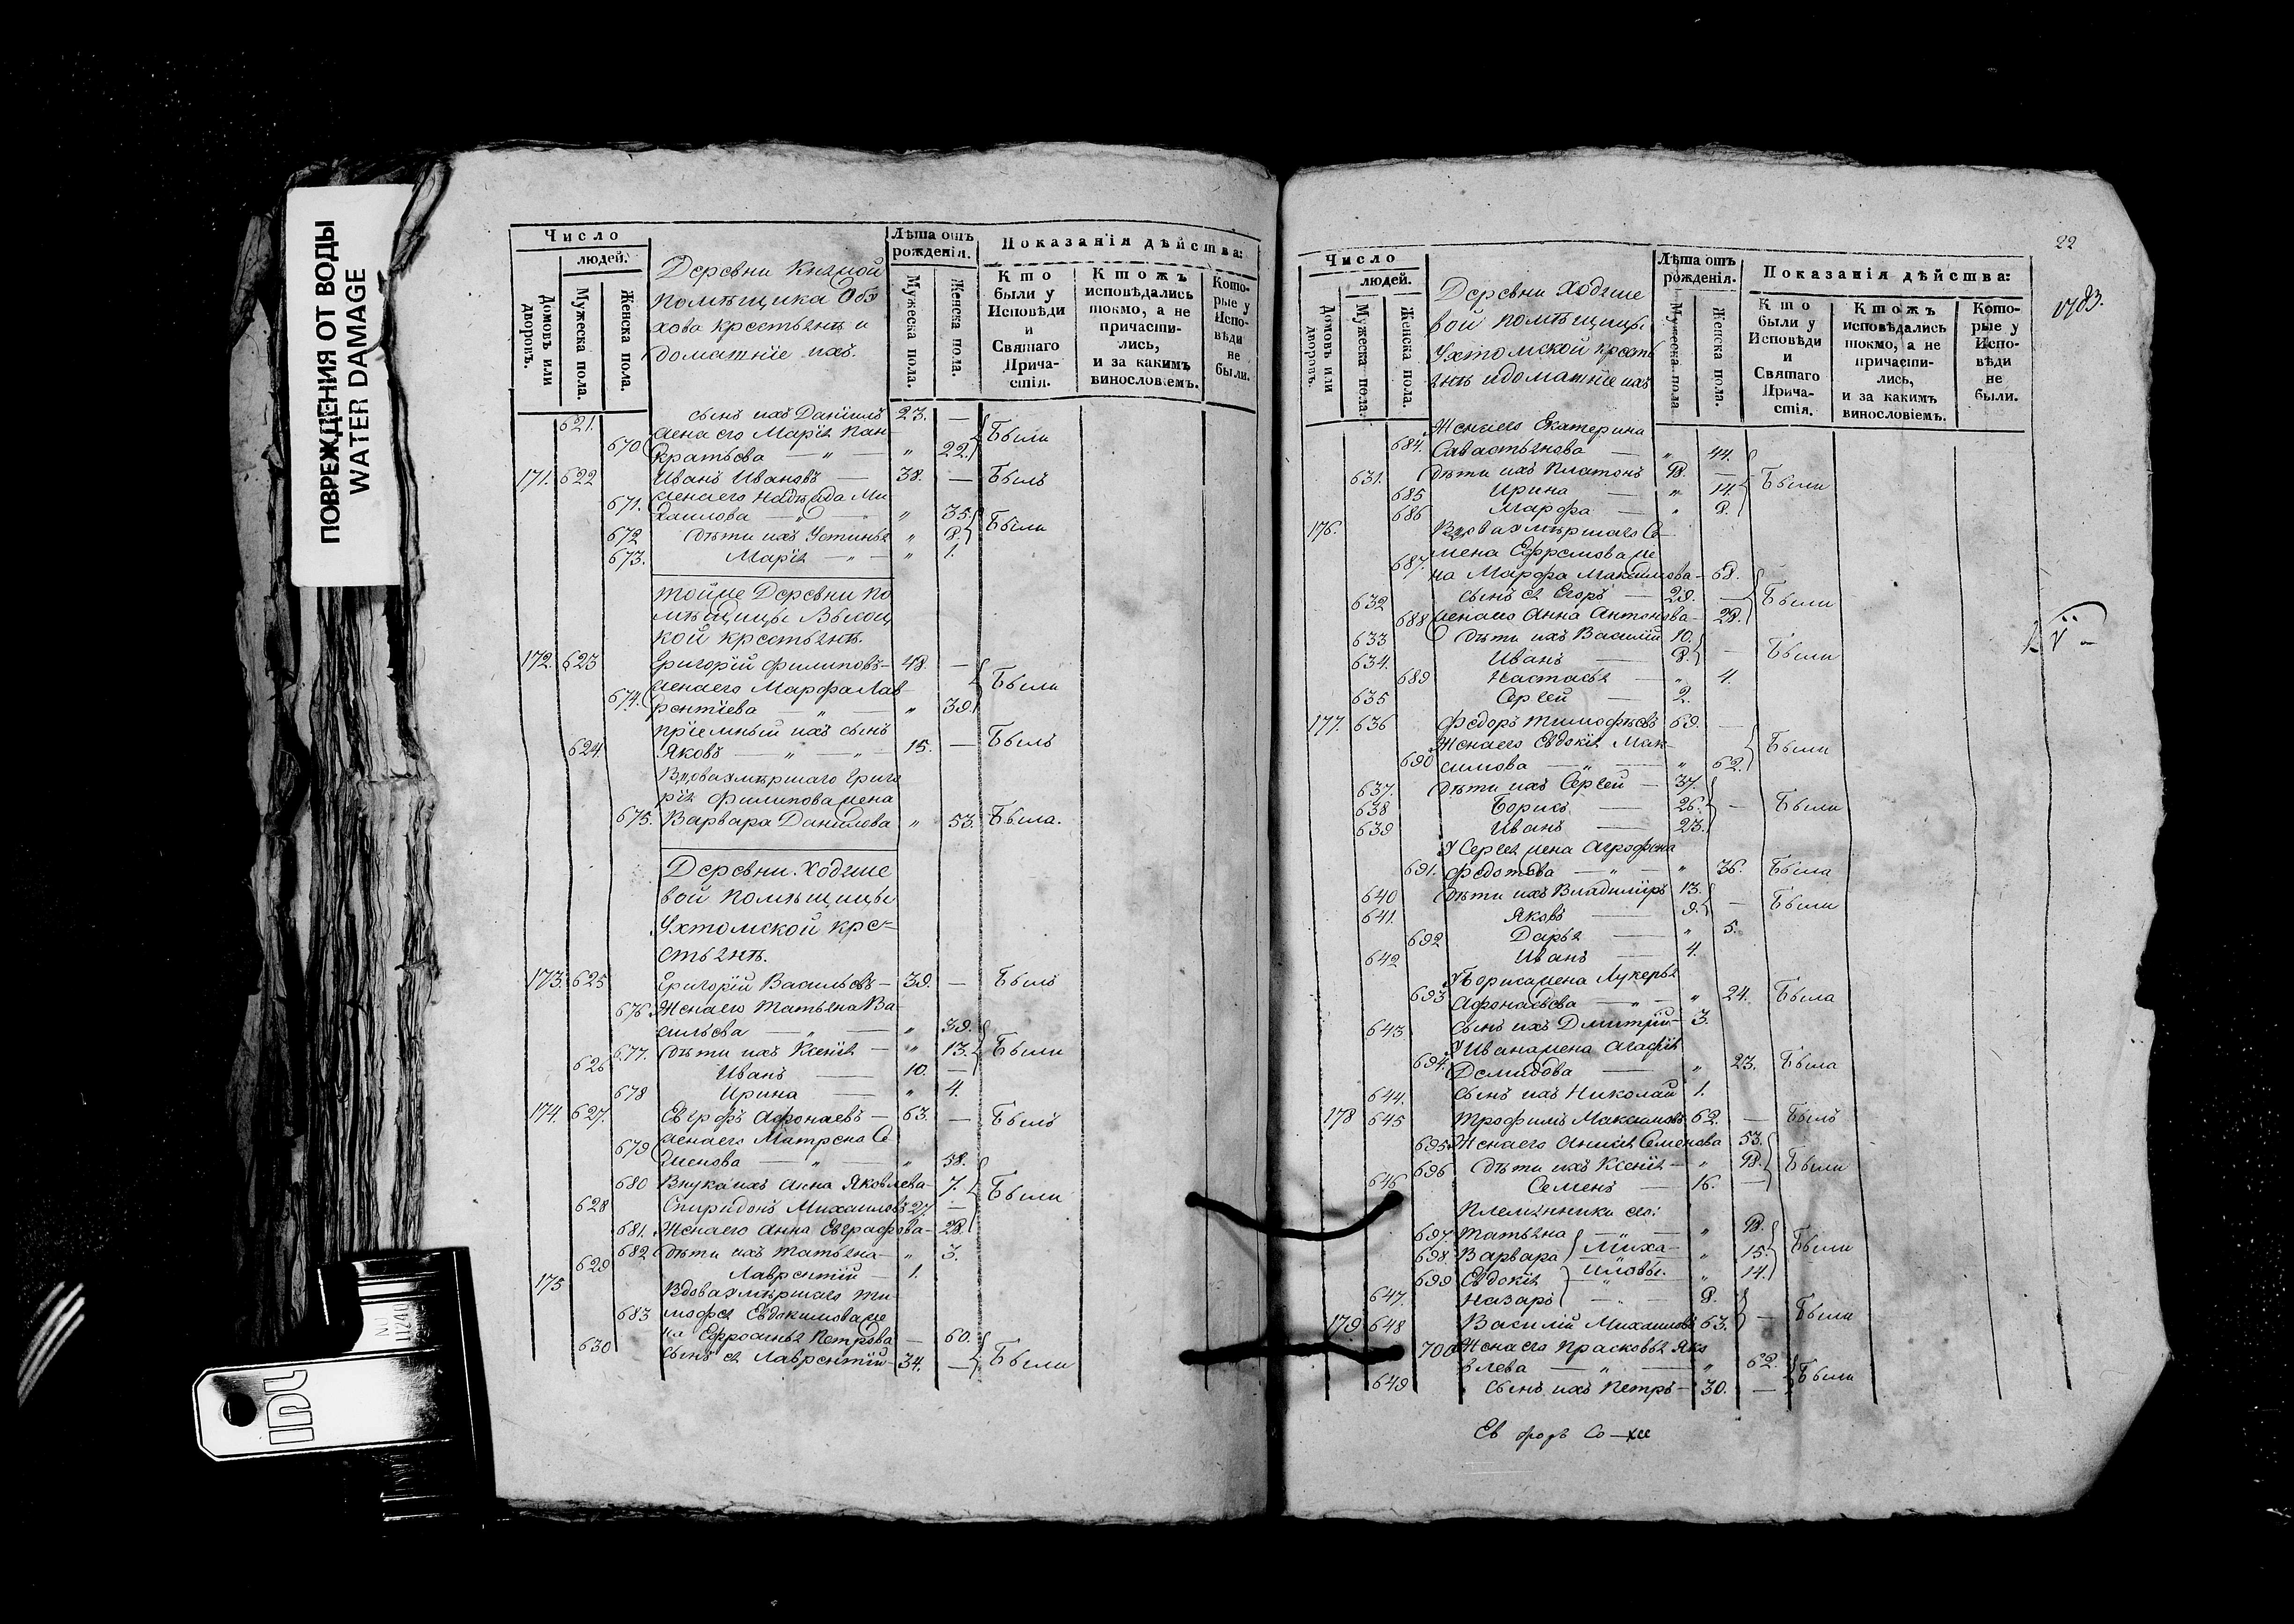 ПОВРЕЖДЕНИЯ ОТ ВОДЫ
WATER DAMAGE
Число
людей.
Домовъ или дворовъ.
Мужеска пола.
Женска пола.
Деревни Княжой
помѣщика Обх
хова крестьянъ и
домашніе ихъ.
Лѣта отъ рожденія.
Мужеска пола.
Женска пола.
Показанія дѣйства:
Кто были у Исповѣди и Святаго Причастія.
Ктожъ исповѣдались токмо, а не причастились, и за какимъ винословіемъ.
Которые у Исповѣди не были.
621. сынъ ихъ Даніилъ 23. —
жена его Марія Пан
670 кратьева — „ — „ 22. Были
171. 622 Иванъ Ивановъ — 38. — Былъ
жена его Надежда Ми
671. хаилова — „ — „ 35. Были
672 дѣти ихъ Устинья „ 8.
673. Марія — „ — „ 1.
тойже Деревни по
мѣщицы Высоц
кой крестьянъ.
172. 623 Григорій Филиповъ — 48. —
жена его Марфа Лав
674. рентіева — „ — „ 39. Были
пріемный ихъ сынъ
624. Яковъ — „ — „ — 15. — Былъ
Вдова умѣршаго Григо
рія Филипова жена
675. Варвара Данилова „ 53. Была.
Деревни Ходяше
вой помѣщицы
Ухтомской кре-
стьянъ.
173. 625 Григорій Васильевъ — 39. — Былъ
676 Жена его Татьяна Ва
сильева — „ — „ 39.
677. дѣти ихъ Ксенія — „ 13. Были
626 Иванъ — 10. —
678 Ирина — „ 4.
174. 627. Евграфъ Афонаевъ — 63. — Былъ
жена его Матрена Се
679 меонова — „ — „ 58.
680 Внука ихъ Анна Яковлева — 7. Были
628 Спиридонъ Михаиловъ 27. —
681. Жена его Анна Евграфова — 28.
682 дѣти ихъ Татьяна — „ 3.
629 Лаврентій — 1.
175 Вдова умѣршаго Ти
683 мофея Евдокимова же
на Ефросинья Петрова — 60.
630 сынъ ея Лаврентій — 34. — Были
22
1783.
Число
людей.
Домовъ или дворовъ.
Мужеска пола.
Женска пола.
Деревни Ходяше
вой помѣщицы
Ухтомской кресть
янъ и домашніе ихъ
Лѣта отъ рожденія.
Мужеска пола
Женска пола.
Показанія дѣйства:
Кто были у Исповѣди и Святаго Причастія.
Ктожъ исповѣдались токмо, а не причастились, и за какимъ винословіемъ.
Которые у Исповѣди не были.
Жена его Екатерина
684. Савастьянова — „ 44.
631. дѣти ихъ Платонъ 18. — Были
685 Ирина — „ 14.
686 Марфа — „ 8.
176. Вдова умѣршаго Се
мена Ефремова же
687. на Марфа Максимова — 68.
632 сынъ ея Егоръ — 29. — Были
688 жена его Анна Антонова — 28.
633 дѣти ихъ Василій 10.
634. Иванъ — 8. — Были
689 Настасья — „ 4.
635 Сергей — 2.
177. 636 Федоръ Тимофѣевъ 69. —
Жена его Евдокія Мак-
690 симова — „ — „ 62. Были
637. дѣти ихъ Сергей — 37.
638 Борисъ — 26. — Были
639 Иванъ — 23.
У Сергея жена Агрофена
691. Федотова — „ — „ 36. Была
640 дѣти ихъ Владимиръ 13.
641. Яковъ — 9. — Были
692 Дарья — „ 5.
642 Иванъ — 4.
У Бориса жена Лукерья
693 Афонасьева — „ — „ 24. Была
643 сынъ ихъ Дмитрій — 3.
У Ивана жена Агафія
694. Демидова — „ 23. Была
644. сынъ ихъ Николай 1.
178 645 Трофимъ Максимовъ 62. — Былъ
695 Жена его Анисія Семенова 53.
696 дѣти ихъ Ксенія — „ 18. Были
646 Семенъ — 16. —
Племянники его:
697. Татьяна — „ 18.
698. Варвара Миха- „ 15. Были
699 Евдокія иловы. „ 14.
647. Назаръ — „ — 8.
179 648 Василій Михаиловъ 63. — Были
700 Жена его Прасковья Яко
влева — „ — „ 62.
649 сынъ ихъ Петръ — 30. — Были